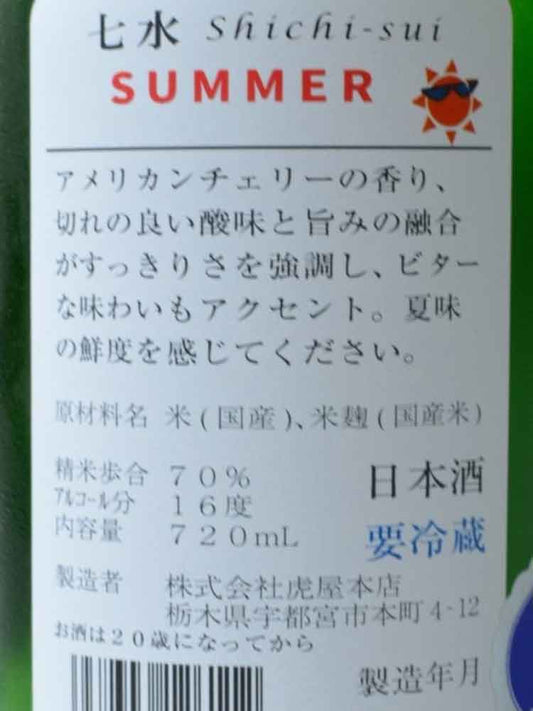 七水 Shichi-sui
SUMMER
アメリカンチェリーの香り、
切れの良い酸味と旨みの融合
がすっきりさを強調し、ビター
な味わいもアクセント。夏味
の鮮度を感じてください。
原材料名 米(国産)、米麹(国産米)
精米歩合 70%
アルコール分 16度
内容量 720mL
日本酒
要冷蔵
製造者 株式会社虎屋本店
栃木県宇都宮市本町4-12
お酒は20歳になってから
製造年月